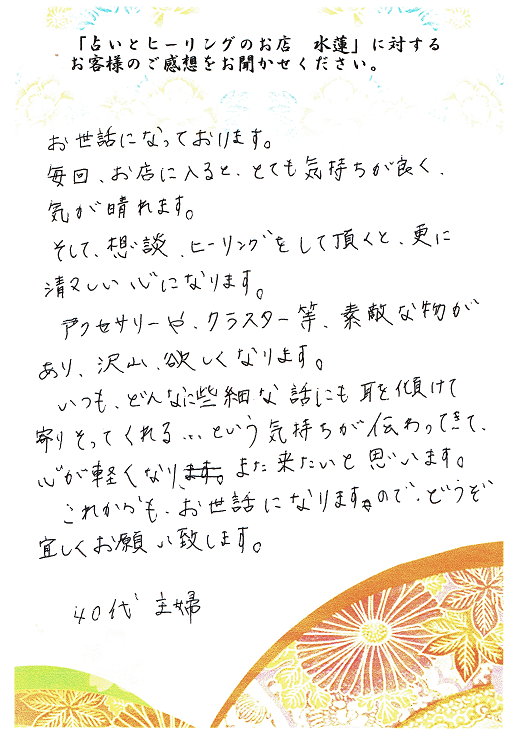 「占いとヒーリングのお店　水蓮」に対する
お客様のご感想をお聞かせください。
お世話になっております。
毎回、お店に入ると、とても気持ちが良く、
気が晴れます。
そして、想談、ヒーリングをして頂くと、更に
清々しい心になります。
アクセサリーや、クラスター等、素敵な物が
あり、沢山、欲しくなります。
いつも、どんなに些細な話にも耳を傾けて
寄りそってくれる…という気持ちが伝わってきて、
心が軽くなります。また来たいと思います。
これからも、お世話になりますので、どうぞ
宜しくお願い致します。
40代 主婦